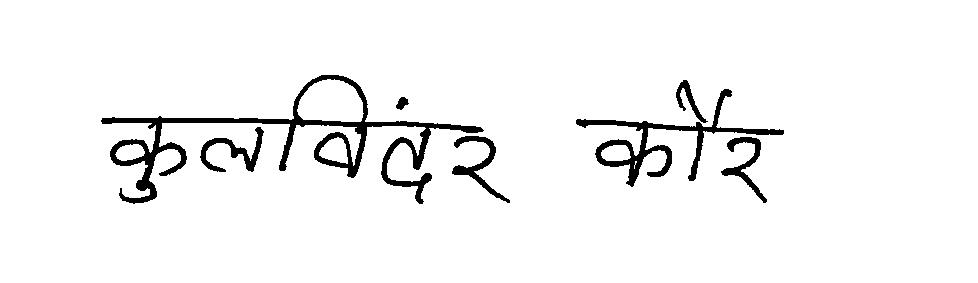 कुलविंदर कौर